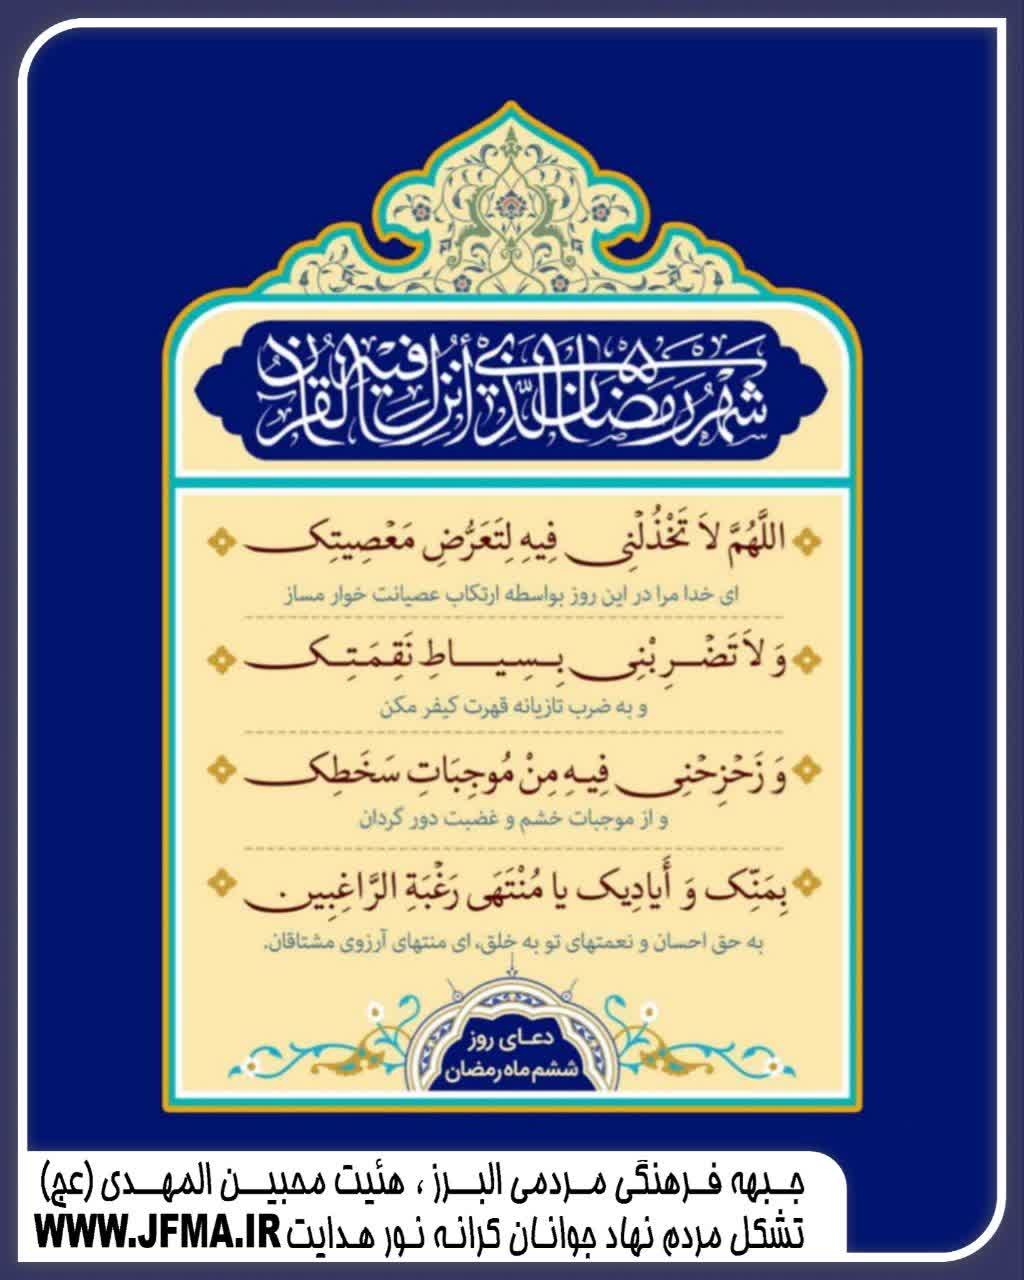 شَهْرُ رَمَضَانَ الَّذِي أُنْزِلَ فِيهِ الْقُرْآنُ
اللَّهُمَّ لاَ تَخْذُلْنِی فِیهِ لِتَعَرُّضِ مَعْصِیتِک
ای خدا مرا در این روز بواسطه ارتکاب عصیانت خوار مساز
وَ لاَ تَضْرِبْنِی بِسِیاطِ نَقِمَتِک
و به ضرب تازیانه قهرت کیفر مکن
وَ زَحْزِحْنِی فِیهِ مِنْ مُوجِبَاتِ سَخَطِک
و از موجبات خشم و غضبت دور گردان
بِمَنِّک وَ أَیادِیک یا مُنْتَهَی رَغْبَةِ الرَّاغِبِین.
به حق احسان و نعمتهای تو به خلق، ای منتهای آرزوی مشتاقان.
دعای روز
ششم ماه رمضان
جبهه فرهنگی مردمی البرز ، هئیت محبین المهدی (عج)
تشکل مردم نهاد جوانان کرانه نور هدایت WWW.JFMA.IR